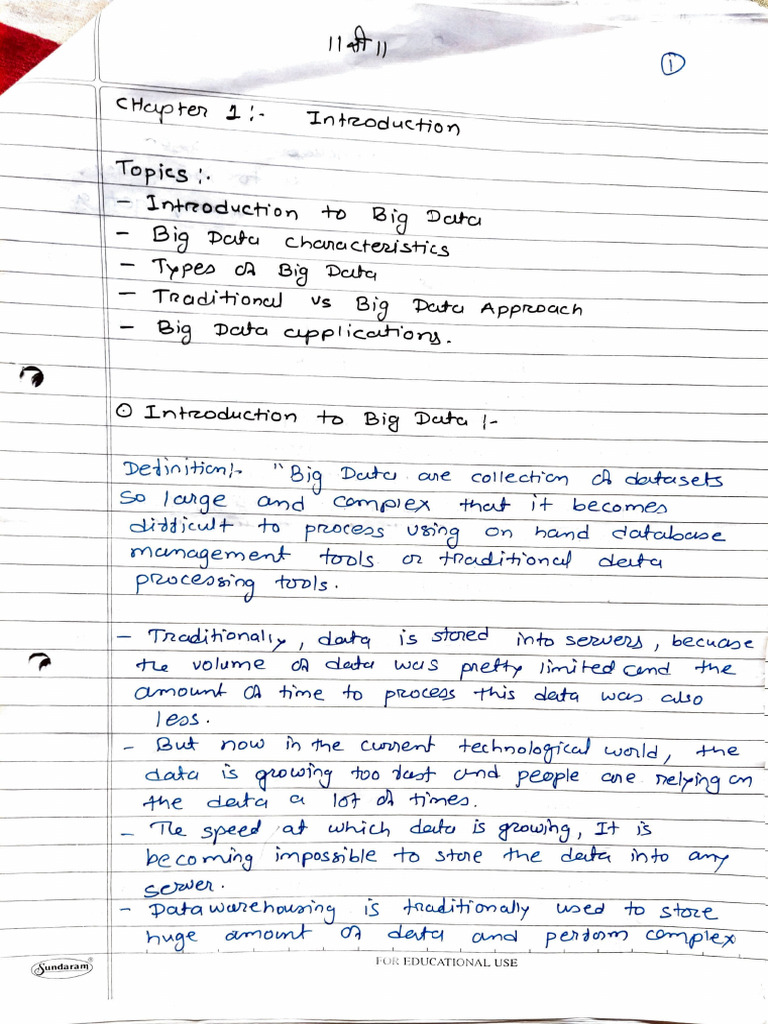 ॥ श्री ॥
1
Chapter 1 :- Introduction
Topics :-
- Introduction to Big Data
- Big Data characteristics
- Types of Big Data
- Traditional vs Big Data Approach
- Big Data applications.
⊙ Introduction to Big Data :-
Definition:- "Big Data are collection of datasets
so large and complex that it becomes
difficult to process using on hand database
management tools or traditional data
processing tools.
- Traditionally, data is stored into servers, becuase
the volume of data was pretty limited and the
amount of time to process this data was also
less.
- But now in the current technological world, the
data is growing too fast and people are relying on
the data a lot of times.
- The speed at which data is growing, It is
becoming impossible to store the data into any
server.
- Data warehousing is traditionally used to store
huge amount of data and perform complex
Sundaram®
FOR EDUCATIONAL USE